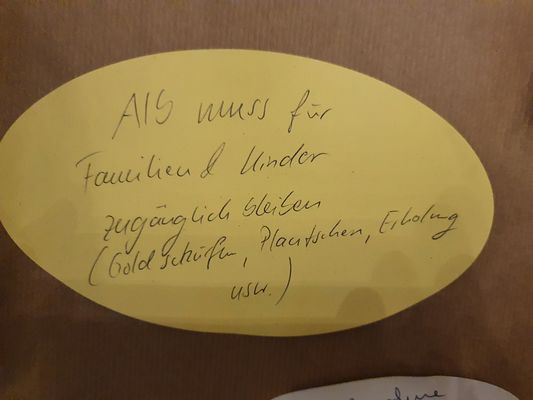 AIS muss für
Familien & Kinder
zugänglich bleiben
(Goldschürfen, Plantschen, Erholung
usw.)